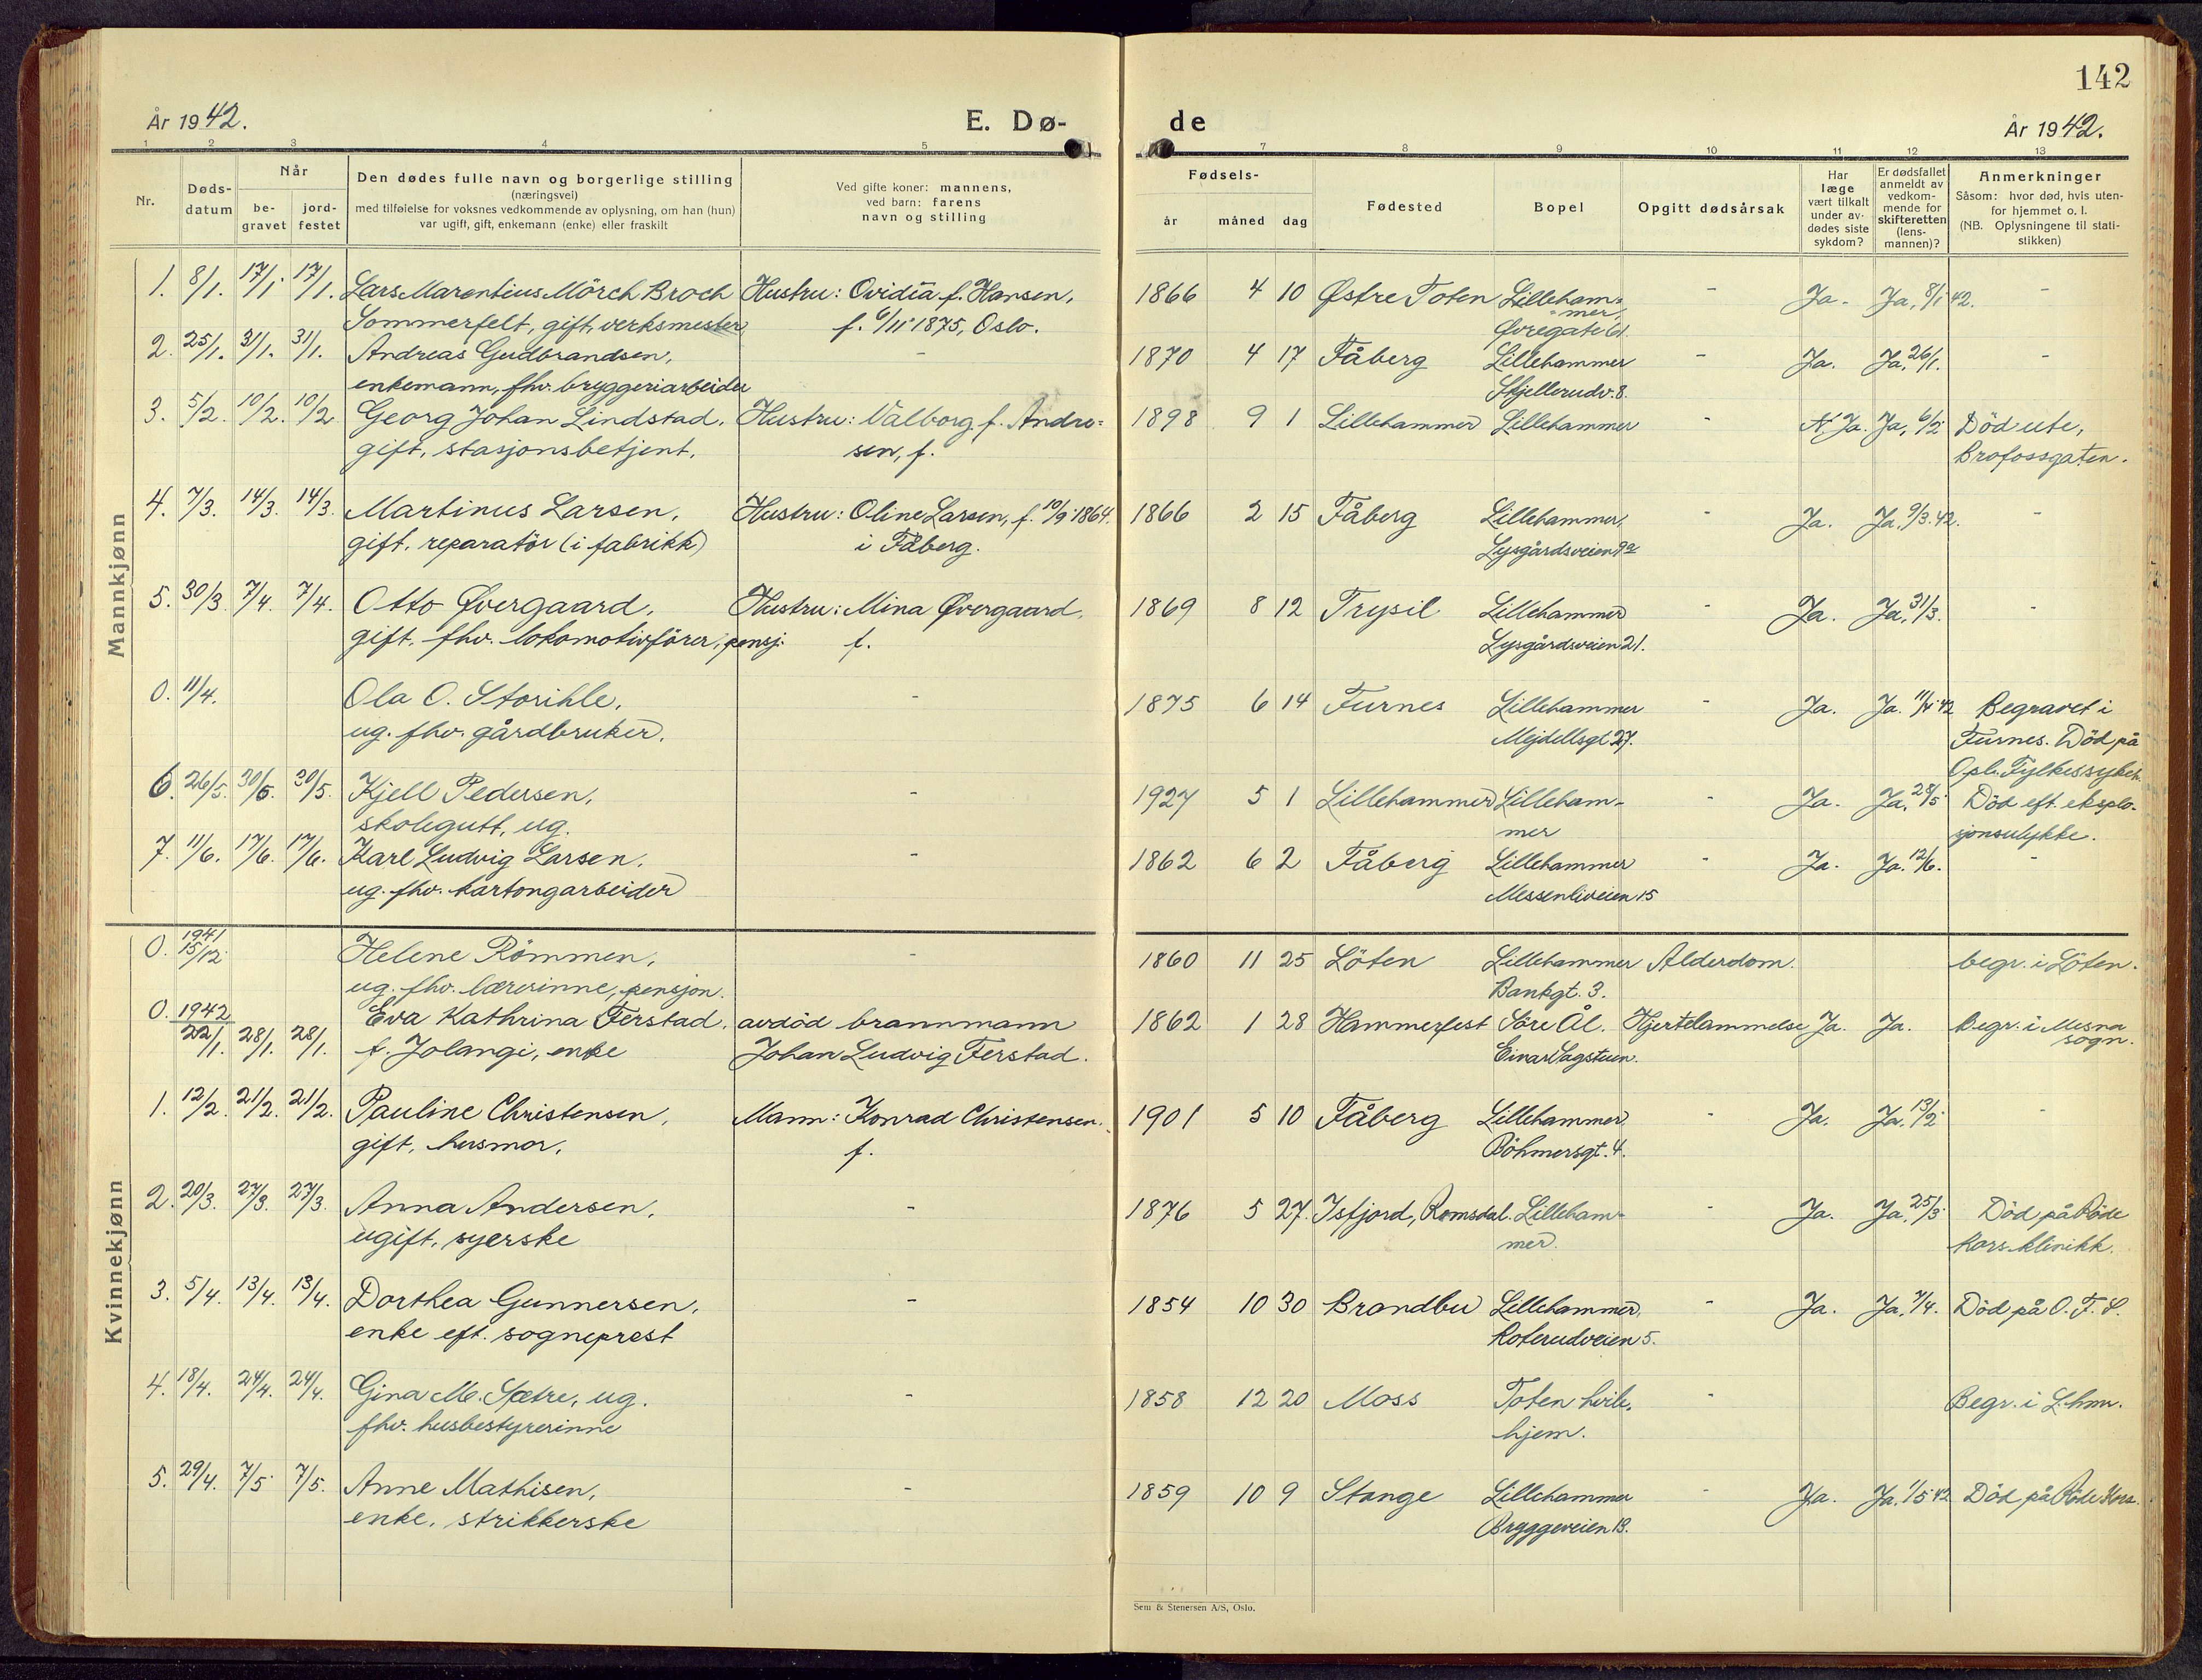 142
År 1942.
E. Dø-
de
År 1942.
1 2 3 4 5 7 8 9 10 11 12 13
Nr.
Døds-
datum
Når
be-
gravet
jord-
festet
Den dødes fulle navn og borgerlige stilling
(næringsvei)
med tilføielse for voksnes vedkommende av oplysning, om han (hun)
var ugift, gift, enkemann (enke) eller fraskilt
Ved gifte koner: mannens,
ved barn: farens
navn og stilling
Fødsels-
år måned dag
Fødested
Bopel
Opgitt dødsårsak
Har
læge
vært tilkalt
under av-
dødes siste
sykdom?
Er dødsfallet
anmeldt av
vedkom-
mende for
skifteretten
(lens-
mannen)?
Anmerkninger
Såsom: hvor død, hvis uten-
for hjemmet o. l.
(NB. Oplysningene til stati-
stikken)
Mannkjønn
1. 8/1. 17/1 17/1. Lars Marentius Mörch Broch Hustru: Ovidia f. Hansen, 1866 4 10 Østre Toten Lilleham= - Ja. Ja, 8/1 42. -
Sommerfelt, gift, verksmester f. 6/11 1875, Oslo. =mer,
Øvregate 61.
2. 25/1. 31/1. 31/1. Andreas Gudbrandsen, - 1870 4 17 Fåberg Lillehammer - Ja. Ja, 26/1. -
enkemann, fhv. bryggeriarbeider Skjellerudv. 8.
3. 5/2. 10/2. 10/2 Georg Johan Lindstad, Hustru: Valborg f. Andre= 1898 9 1 Lillehammer Lillehammer - N. Ja. Ja, 6/2 Död ute,
gift, stasjonsbetjent. sen, f. Brofossgaten.
4. 7/3. 14/3. 14/3. Martinus Larsen, Hustru: Oline Larsen, f. 10/9 1864. 1866 2 15 Fåberg Lillehammer, Ja. Ja, 9/3. 42. -
gift, reparatör (i fabrikk) i Fåberg. Lysgårdsveien 9a
5. 30/3 7/4. 7/4. Otto Øvergaard, Hustru: Mina Øvergaard, 1869 8 12 Trysil Lillehammer - Ja. Ja, 31/3. -
gift, fhv. lokomotivförer, pensj. f. Lysgårdsveien 21.
0. 11/4. Ola O. Storihle, - 1875 6 14 Furnes Lillehammer - Ja. Ja. 11/4 42 Begravet i
ug. fhv. gårdbruker. Mejdellsgt 27. Furnes. Död på
Opl. Fylkessykeh.
6. 26/5. 30/5. 30/5. Kjell Pedersen, - 1927 5 1 Lillehammer Lilleham- - Ja. Ja, 28/5 Död eft. eksplo-
skolegutt, ug. mer sjonsulykke.
7. 11/6. 17/6. 17/6. Karl Ludvig Larsen, - 1862 6 2 Fåberg Lillehammer - Ja. Ja. 12/6. -
ug. fhv. kartongarbeider Messenliveien 15
Kvinnekjønn
0. 1941
15/12 Helene Römmen, - 1860 11 25 Löten Lillehammer Alderdom. begr. i Löten.
ug. fhv. lærerinne, pensjon. Bankgt. 3.
0. 1942
22/1. 28/1. 28/1. Eva Kathrina Ferstad, avdöd brannmann 1862 1 28 Hammerfest Söre Ål. Hjertelammelse Ja. Ja. Begr. i Mesna
f. Jolangi, enke Johan Ludvig Ferstad. Einar Sagstuen. sogn.
1. 12/2. 21/2. 21/2. Pauline Christensen, Mann: Konrad Christensen. 1901 5 10 Fåberg Lillehammer - Ja. Ja. 13/2 -
gift, husmor, f. Böhmersgt. 4.
2. 20/3. 27/3. 27/3. Anna Andersen, - 1876 5 27. Isfjord, Romsdal. Lilleham- - Ja. Ja, 25/3 Död på Röde
ugift, syerske mer. Kors klinikk.
3. 5/4. 13/4. 13/4. Dorthea Gunnersen, - 1854 10 30 Brandbu Lillehammer, - Ja. Ja, 7/4. Död på O. F. S.
enke eft. sogneprest Roterudveien 5.
4. 18/4. 24/4. 24/4. Gina M. Sætre, ug. - 1858 12 20 Moss Toten hvile- - Begr. i L.hmr.
fhv. husbestyrerinne hjem.
5. 29/4. 7/5 7/5. Anne Mathisen, - 1859 10 9 Stange Lillehammer - Ja. Ja. 1/5 42 Död på Röde Kors.
enke, strikkerske Bryggeveien 13.
Sem & Stenersen A/S, Oslo.